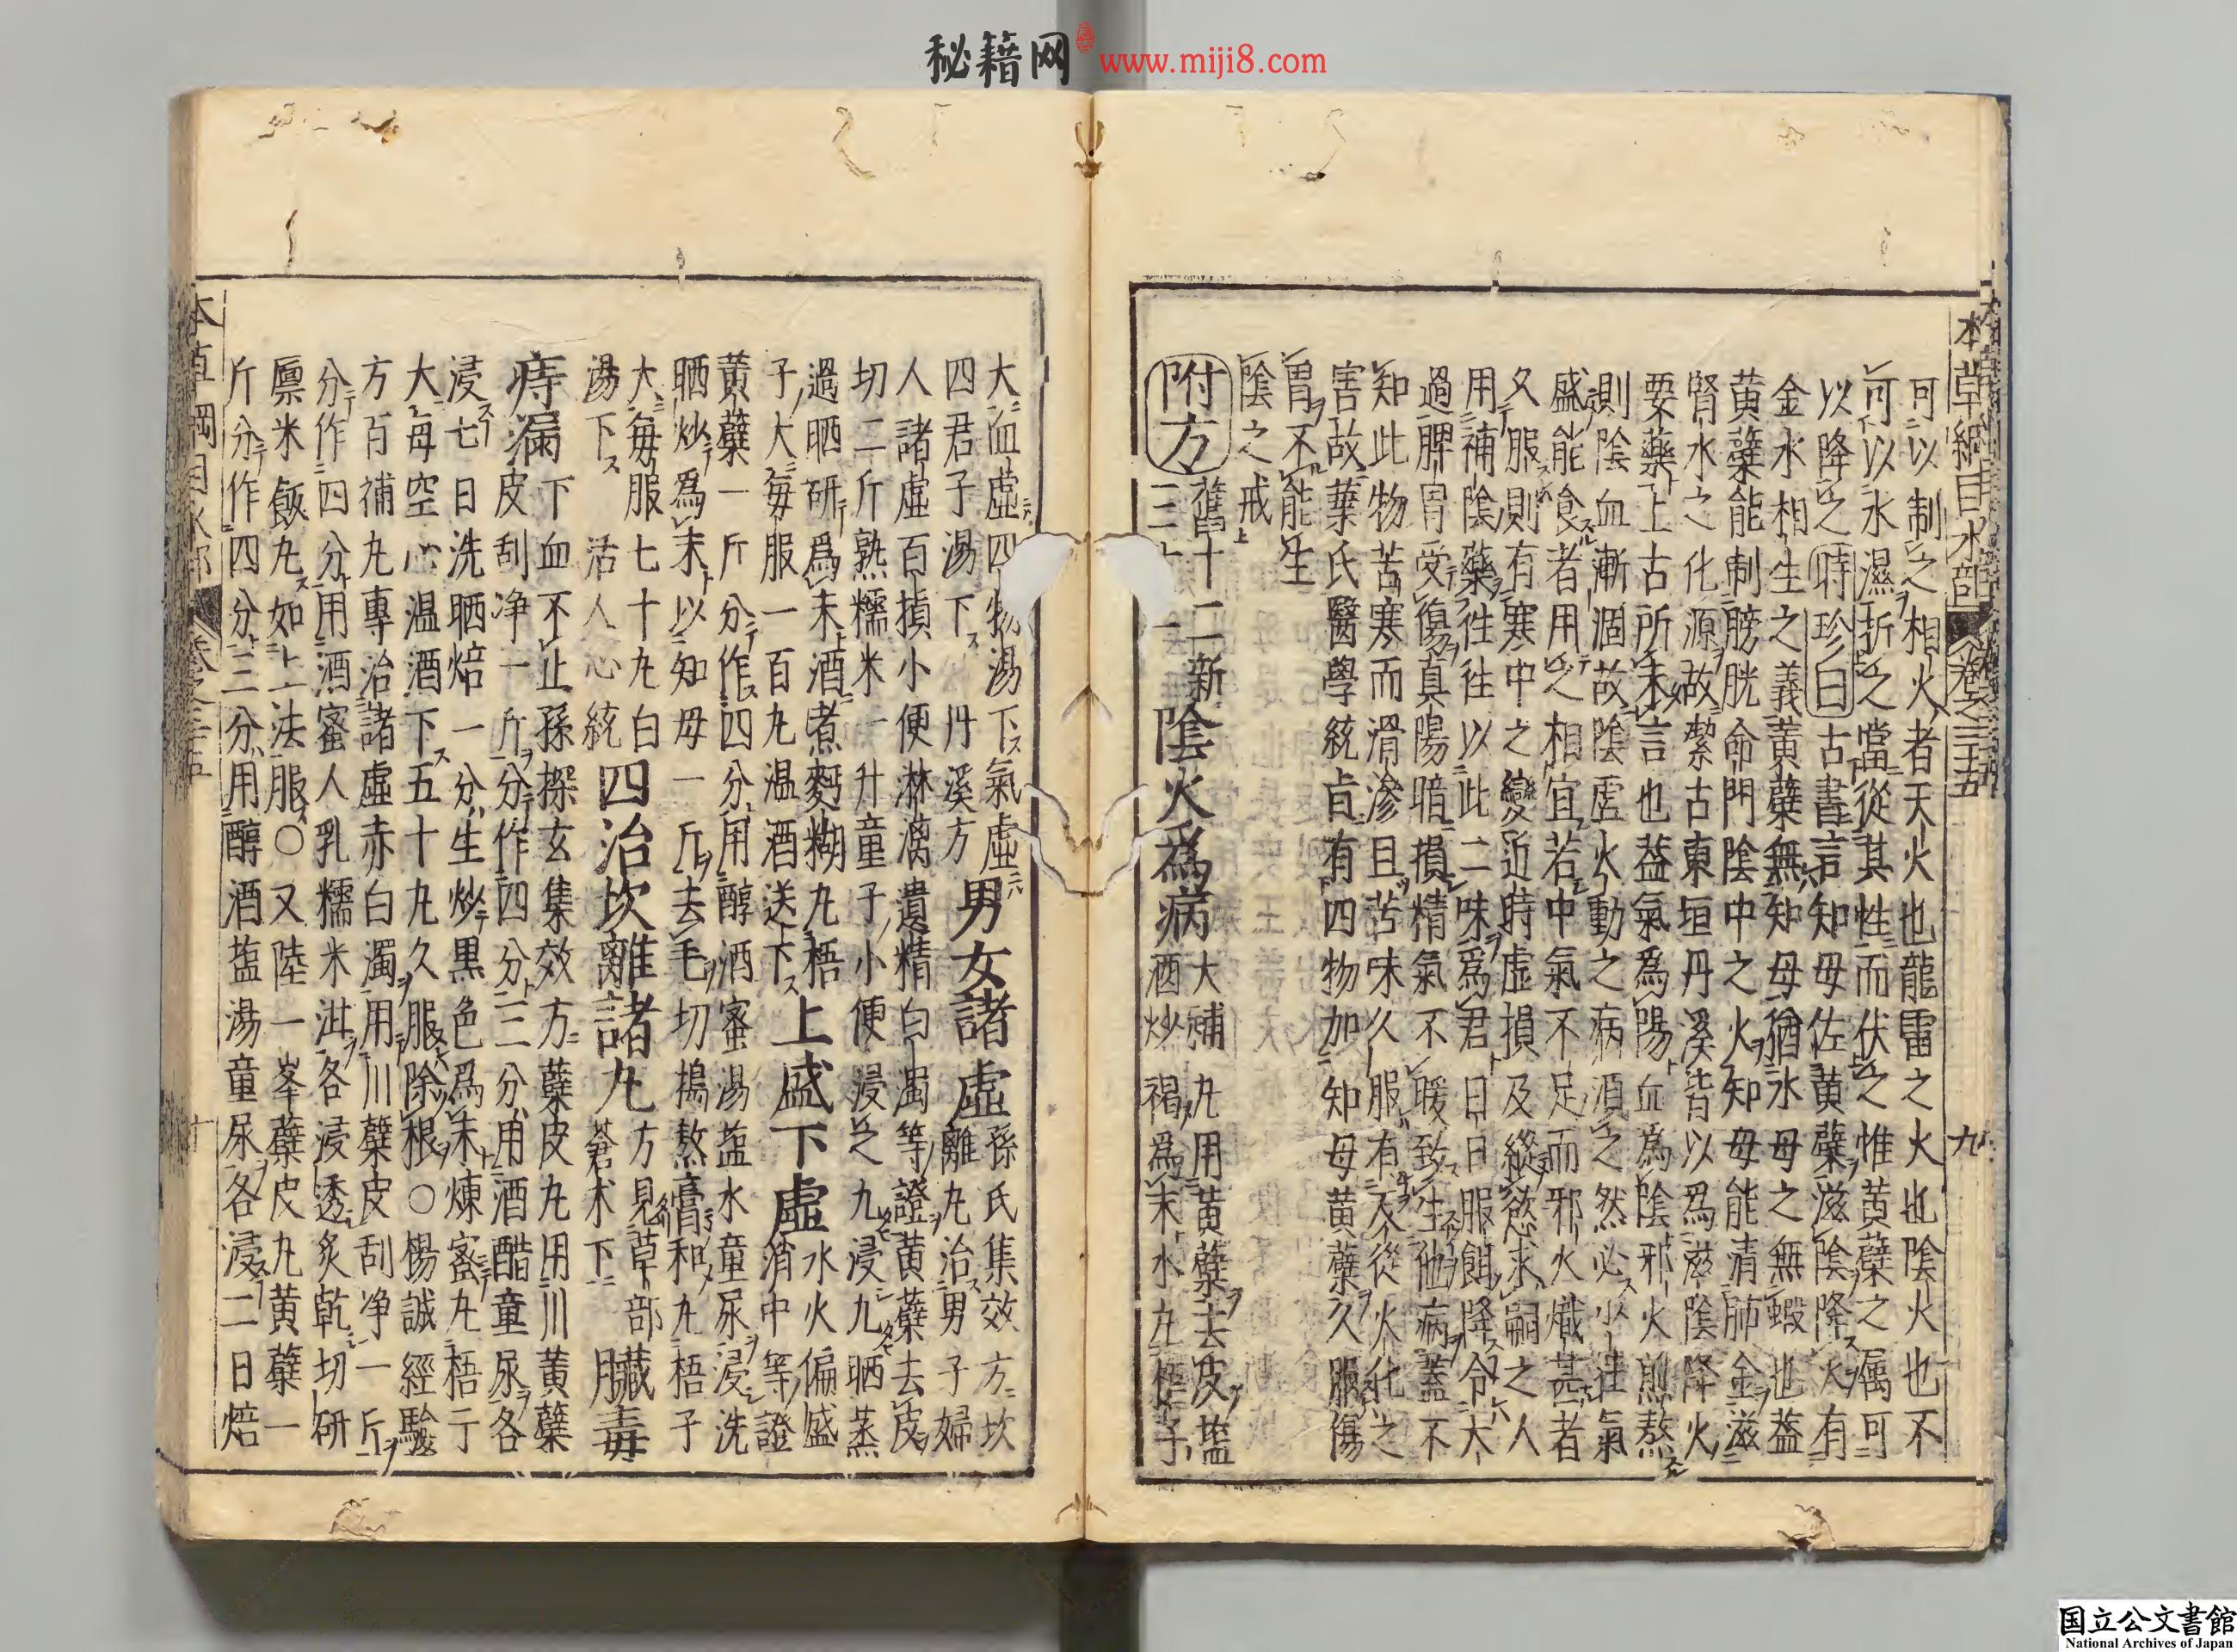 秘籍网 www.miji8.com
本草綱目木部 卷之三十五 九
可以制之相火者天火也龍雷之火也陰火也不
可以水濕折之當從其性而伏之惟黄蘗之属可
以降之時珍曰古書言知母佐黄蘗滋陰降火有
金水相生之義黄蘗無知母猶水母之無蝦也蓋
黄蘗能制膀胱命門陰中之火知母能清肺金滋
腎水之化源故潔古東垣丹溪皆以爲滋陰降火
要藥上古所未言也蓋氣爲陽血爲陰邪火煎熬
則陰血漸涸故陰虛火動之病須之然必少壯氣
盛能食者用之相宜若中氣不足而邪火熾甚者
久服則有寒中之變近時虛損及縱慾求嗣之人
用補陰藥往往以此二味爲君日日服餌降令太
過脾胃受傷真陽暗損精氣不暖致生他病蓋不
知此物苦寒而滑滲且苦味久服有反從火化之
害故葉氏醫學統旨有四物加知母黄蘗久服傷
胃不能生
陰之戒
附方 舊十二新三十一 陰火爲病 大補丸用黄蘗去皮塩酒炒褐爲末水丸梧子
大血虛四物湯下氣虛
四君子湯下丹溪方 男女諸虛 孫氏集效方坎離丸治男子婦
人諸虛百損小便淋漓遺精白濁等證黄蘗去皮
切二斤熟糯米一升童子小便浸之九浸九晒蒸
過晒研爲末酒煮麪糊丸梧
子大毎服一百丸温酒送下 上盛下虛 水火偏盛消中等證
黄蘗一斤分作四分用醇酒蜜湯塩水童尿浸洗
晒炒爲末以知母一斤去毛切搗熬膏和丸梧子
大毎服七十丸白
湯下活人心統 四治坎離諸丸 方見草部蒼术下 臓毒
痔漏 下血不止孫探玄集效方蘗皮丸用川黄蘗
皮刮净一斤分作四分三分用酒醋童尿各
浸七日洗晒焙一分生炒黒色爲末煉蜜丸梧子
大毎空心温酒下五十丸久服除根○楊誠經驗
方百補丸專治諸虛赤白濁用川蘗皮刮净一斤
分作四分用酒蜜人乳糯米泔各浸透炙乾切研
廪米飯丸如上法服○又陸一峯蘗皮丸黄蘗一
斤分作四分三分用醇酒塩湯童尿各浸二日焙
本草綱目木部 卷之三十五 十
国立公文書館
National Archives of Japan